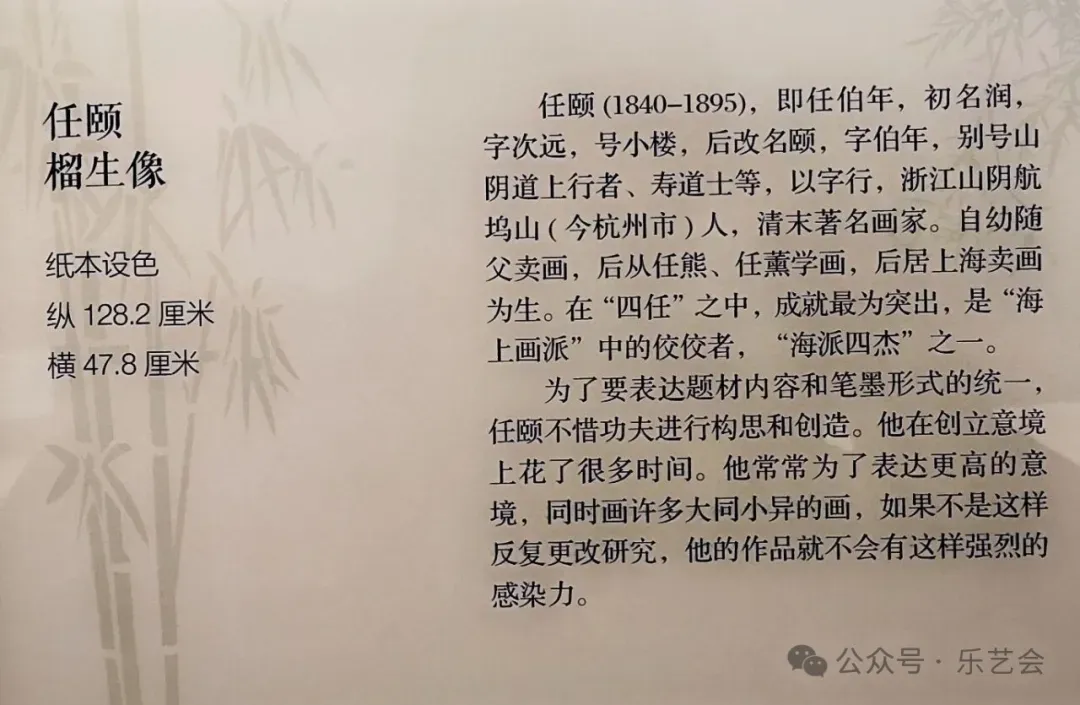 任颐
榴生像
纸本设色
纵 128.2 厘米
横 47.8 厘米
任颐 (1840–1895)，即任伯年，初名润，
字次远，号小楼，后改名颐，字伯年，别号山
阴道上行者、寿道士等，以字行，浙江山阴航
坞山 ( 今杭州市 ) 人，清末著名画家。自幼随
父卖画，后从任熊、任薰学画，后居上海卖画
为生。在“四任”之中，成就最为突出，是“海
上画派”中的佼佼者，“海派四杰”之一。
为了要表达题材内容和笔墨形式的统一，
任颐不惜功夫进行构思和创造。他在创立意境
上花了很多时间。他常常为了表达更高的意
境，同时画许多大同小异的画，如果不是这样
反复更改研究，他的作品就不会有这样强烈的
感染力。
公众号 · 乐艺会